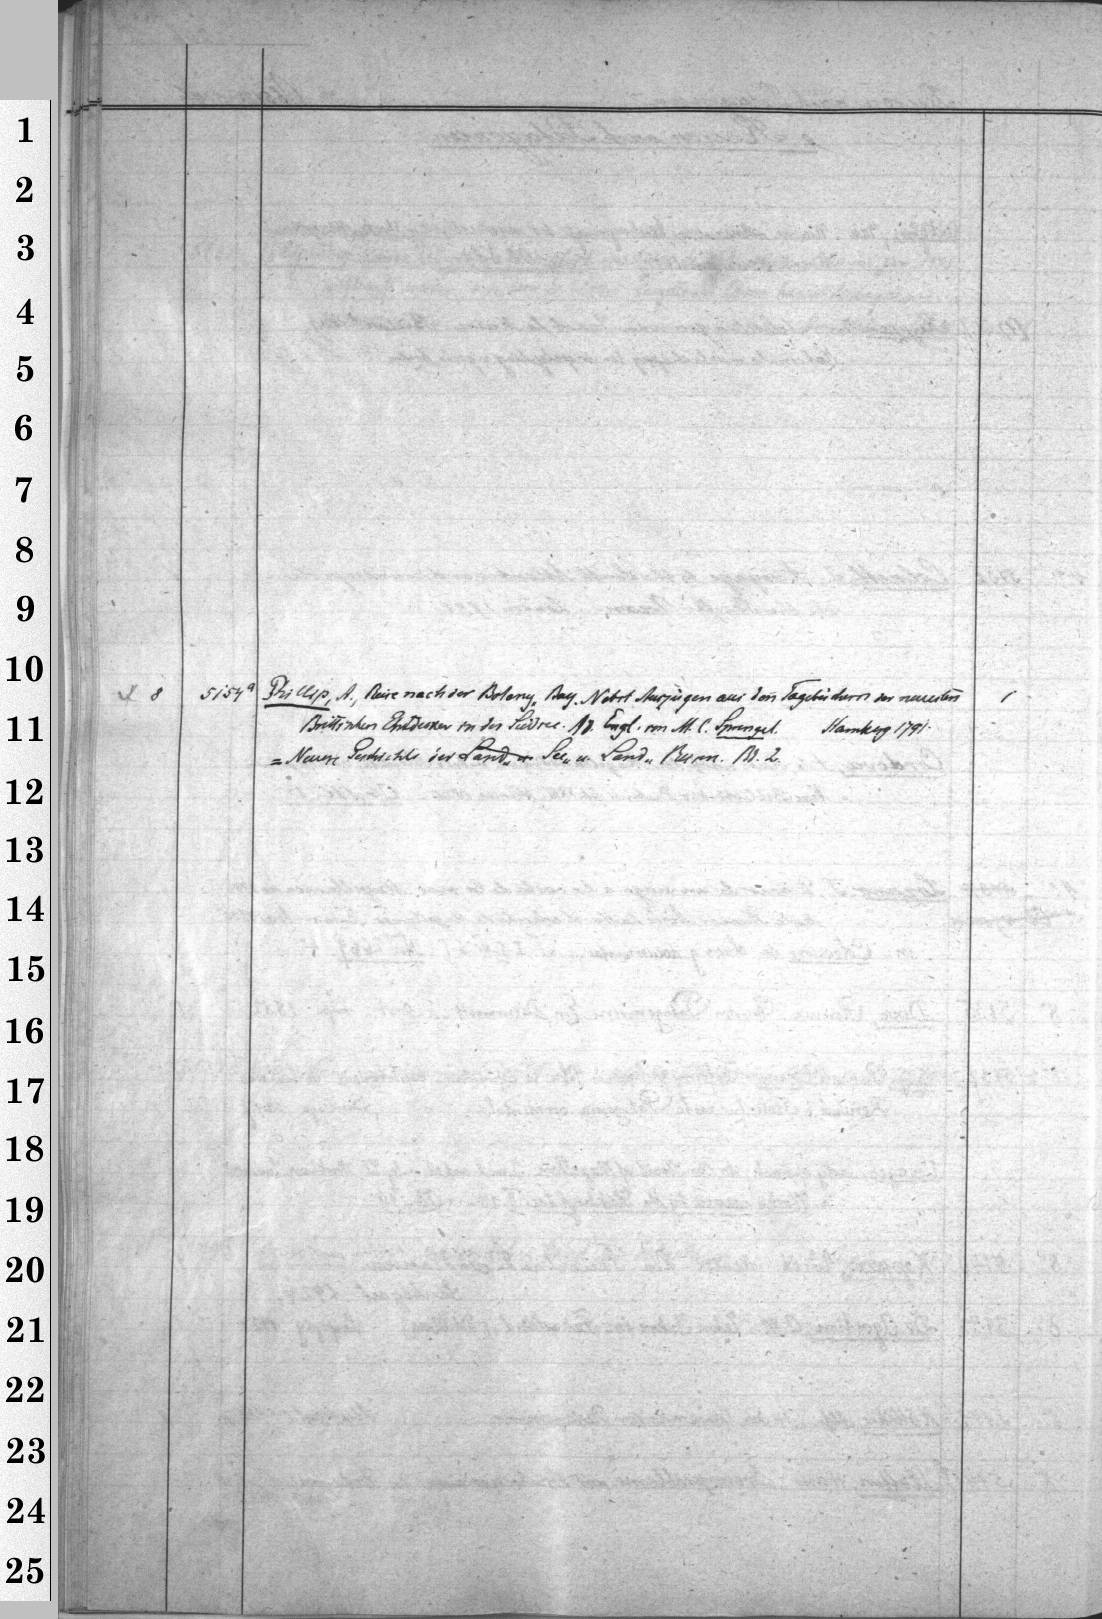 1
2
3
4
5
6
7
8
9
10
x 8 5154a Phillip, A., Reise nach der Botany-Bay. Nebst Auszügen aus den Tagebüchern der neuesten 1
11
Brittischen Entdecker in der Südsee. Engl. von M. C. Sprengel. Hamburg 1791.
= Neuere Geschichte der Land- u. See- u. Land- Reisen. Bd. 2.
12
13
14
15
16
17
18
19
20
21
22
23
24
25